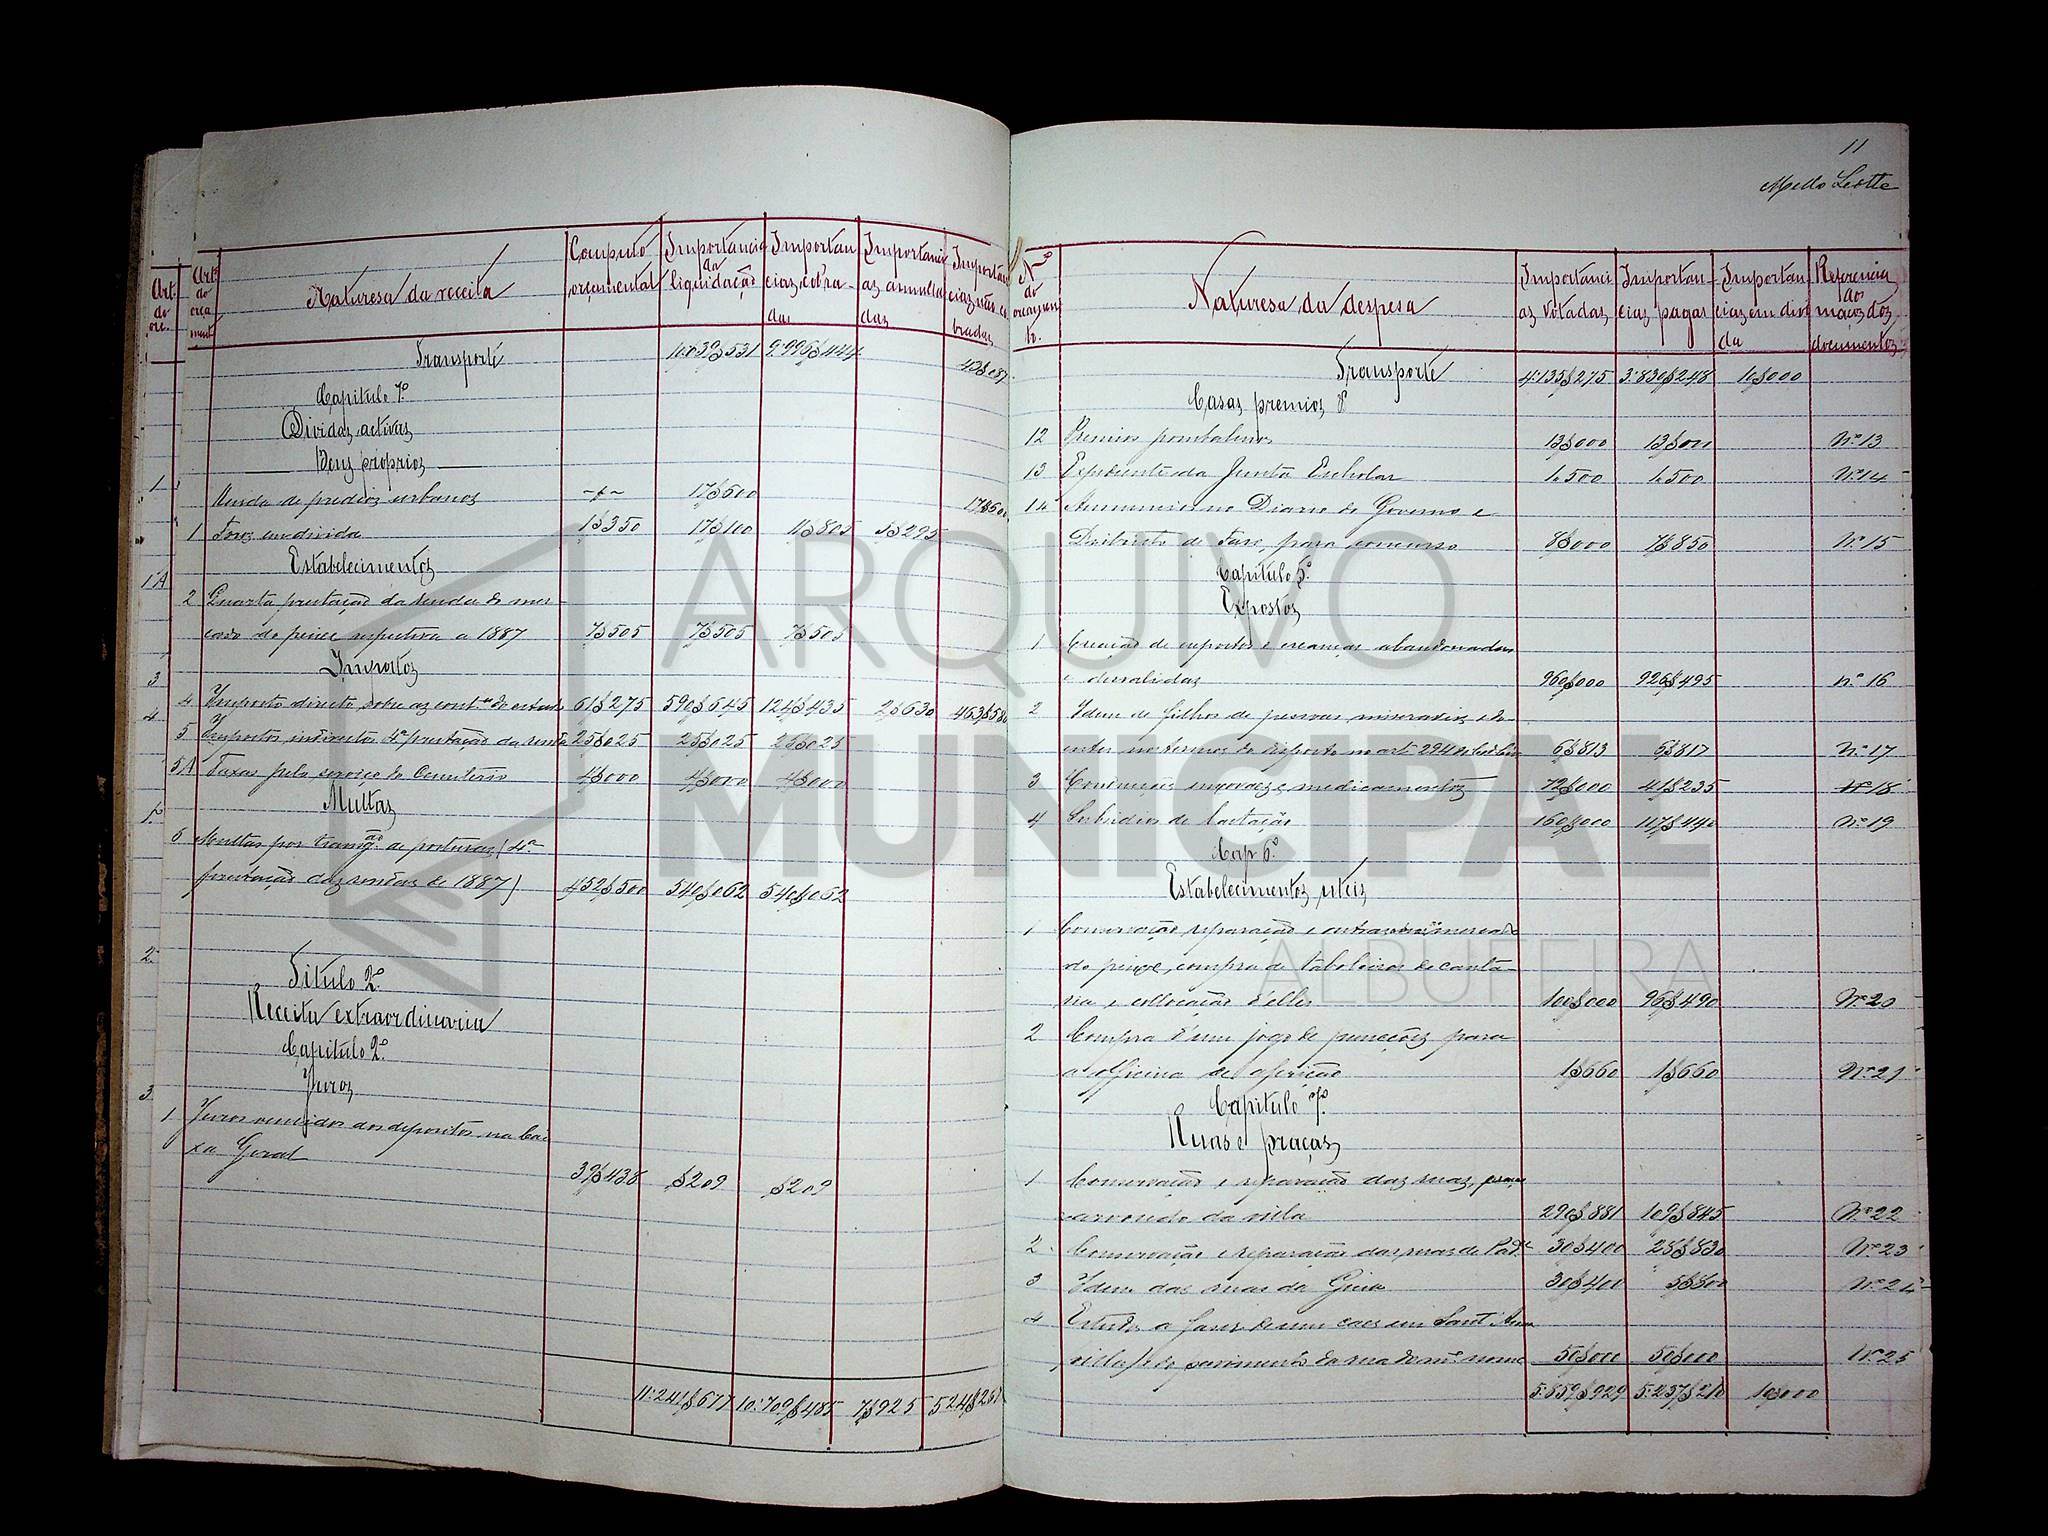 Art. do orçamento
Naturesa da receita
Computo orçamental
Importancia da liquidação
Importancias cobradas
Importancias annulladas
Importancias não cobradas
Transporte 9:996$444 43$087
Capitulo 7º
Dividas activas
Bens proprios
Renda de predios urbanos 17$500 17$500
1 Foros em divida 1$350 17$100 11$805 5$295
Estabelecimentos
2 Quarta prestação da renda do mer-
cado do peixe respectiva a 1887 7$505 7$505 7$505
Impostos
4 Imposto directo sobre as cont.es do estado 61$275 590$645 124$435 2$630 463$580
5 Impostos indirectos 4ª prestação da renda 25$025 25$025 25$025
5A Taxas pelo serviço do Cemiterio 4$000 4$000 4$000
Multas
6 Multas por transg.ão de posturas (4ª
prestação das rendas de 1887) 452$500 540$062 540$062
Titulo 2º
Receita extraordinaria
Capitulo 2º
Juros
1 Juros vencidos dos depositos na Cai-
xa Geral 39$438 $209 $209
11:241$677 10:709$485 7$925 524$267
11
Mello Leotte
Nº do orçamento
Naturesa da despesa
Importancias votadas
Importancias pagas
Importancias em divida
Referencia aos maços dos documentos
Transporte 4:135$275 3:830$248 10$000
Casas, premios &
12 Premios pombalinos 13$000 13$000 Nº 13
13 Expediente da Junta Escholar 1.500 1.500 Nº 14
14 Annuncios no Diario do Governo e
Districto de Faro, para concurso 8$000 7$850 Nº 15
Capitulo 5º
Expostos
1 Creação de expostos e creanças abandonadas
e desvalidas 960$000 926$495 nº 16
2 Idem de filhos de pessoas miseraveis e do-
entes nos termos do disposto no artº 294 6$813 6$817 Nº 17
3 Conducções, enxovaes e medicamentos 72$000 41$235 Nº 18
4 Subsidios de lactação 160$000 117$440 Nº 19
Cap 6º
Estabelecimentos uteis
1 Conservação, reparação e mercado
do peixe, compra de taboleiros de canta-
ria e collocação d'elles 100$000 96$490 Nº 20
2 Compra d'um jogo de puncções para
a officina de aferição 1$660 1$660 Nº 21
Capitulo 7º
Ruas e praças
1 Conservação e reparação das ruas, praças
e arvoredo da villa 290$881 109$845 Nº 22
2 Conservação e reparação das ruas de Pad.e 30$400 28$830 Nº 23
3 Idem das ruas da Guia 30$400 5$500 Nº 24
4 Estudo a fazer de um caes em Sant'Anna
villa, e do pavimento da rua do mº nome 50$000 50$000 Nº 25
5:859$929 5:237$210 10$000
ARQUIVO
MUNICIPAL
ALBUFEIRA